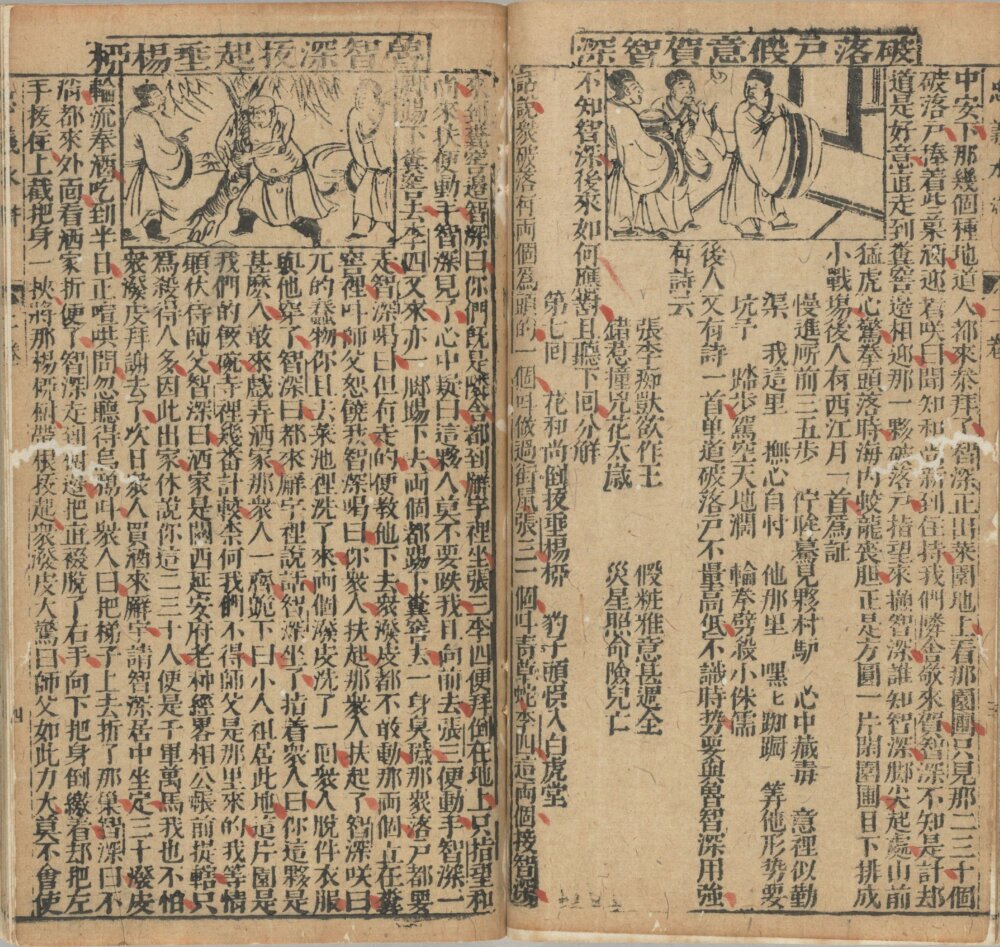 破落戶假意賀智深
中安下那幾個種地道人都來叅拜了智深正出菜園地上看那園圃只見那二三十個
破落戶捧着些菓酒迎着咲曰聞知和尚新到住持我們隣舍敬來賀智深不知是計却
道是好意直走到糞窖邊相迎那一夥破落戶指望來攧智深誰知智深脚尖起處山前
猛虎心驚拳頭落時海内蛟龍喪胆正是方圓一片閑園圃目下排成
小戰場後人有西江月一首為証
慢進所前三五步 佇眸驀見夥村馿 心中藏毒 意裡似勤
渠 我這里 撫心自忖 他那里 嘿匕踟蹰 筭他形勢要
坑予 踏步駕空天地濶 輪拳劈殺小侏儒
後人又有詩一首單道破落戶不量高低不識時勢要與魯智深用強
有詩云
張李痴獃欲作王 假粧雅意甚週全
惹撞兇花太歲 災星照命險兒亡
不知智深後來如何應對且聽下回分觧
第七回 花和尚倒拔垂楊柳 豹子頭悞入白虎堂
話說衆破落村両個為頭的一個呌做過街鼠張三一個呌青草蛇李四這両個接智深
魯智深拔起垂楊柳
來到糞窖邊智深曰你們既是隣舍都到廨宇裡坐張三李四便拜倒在地上只指望和
尚來扶便動手智深見了心中疑曰這夥人莫不要跌我且向前去張三便動手智深一
脚踢下糞窖去李四又來亦一脚踢下去両個都踢下糞窖去一身臭穢那衆破落戶都要
走智深喝曰但有走的便教他下去衆潑皮都不敢動那両個立在糞
窖裡呌師父恕饒我智深喝曰你衆人扶起那衆人扶起了智深咲曰
兀的蠢物你且去菜池裡洗了來両個潑皮洗了一個衆人脫件衣服
與他穿了智深曰都來廨宇裡說話智深坐了指着衆人曰你這夥是
甚麽人敢來戲弄洒家那衆人一齊跪下曰小人祖居此地這片園是
我們的飯碗寺裡幾番計較奈何我們不得師父是那里來的我等情
願伏侍師父智深曰洒家是關西延安府老种經畧相公帳前提轄只
爲殺得人多因此出家休說你這二三十人便是千軍萬馬我也不怕
衆潑皮拜謝去了次日衆人買酒來廨宇請智深居中坐定三十潑皮
輪流奉酒吃到半日正喧哄問忽聽得烏鴉呌衆人曰把梯子上去折了那巢智深曰不
消都來外面看洒家折便了智深走到樹邉把直裰脫了右手向下把身倒繳着却把左
手拔住上截把身一挾將那楊柳樹帶根拔起衆潑皮大驚曰師父如此力大莫不會使
四